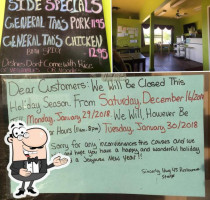 SIDE SPECIALS
GENERAL TAO'S PORK 11.95
GENERAL TAO'S CHICKEN
12.95
Dishes Don't Come with Rice
Dear Customers: We Will Be Closed This
Holiday Season. From Saturday, December 16/2017
Monday, January 29/2018. We Will, However Be
Hours Tuesday, January 30/2018
Sorry for any inconveniences this Causes and we
hope you have a happy and wonderful holiday
Joyous New Year!!
Sincerely
Staff